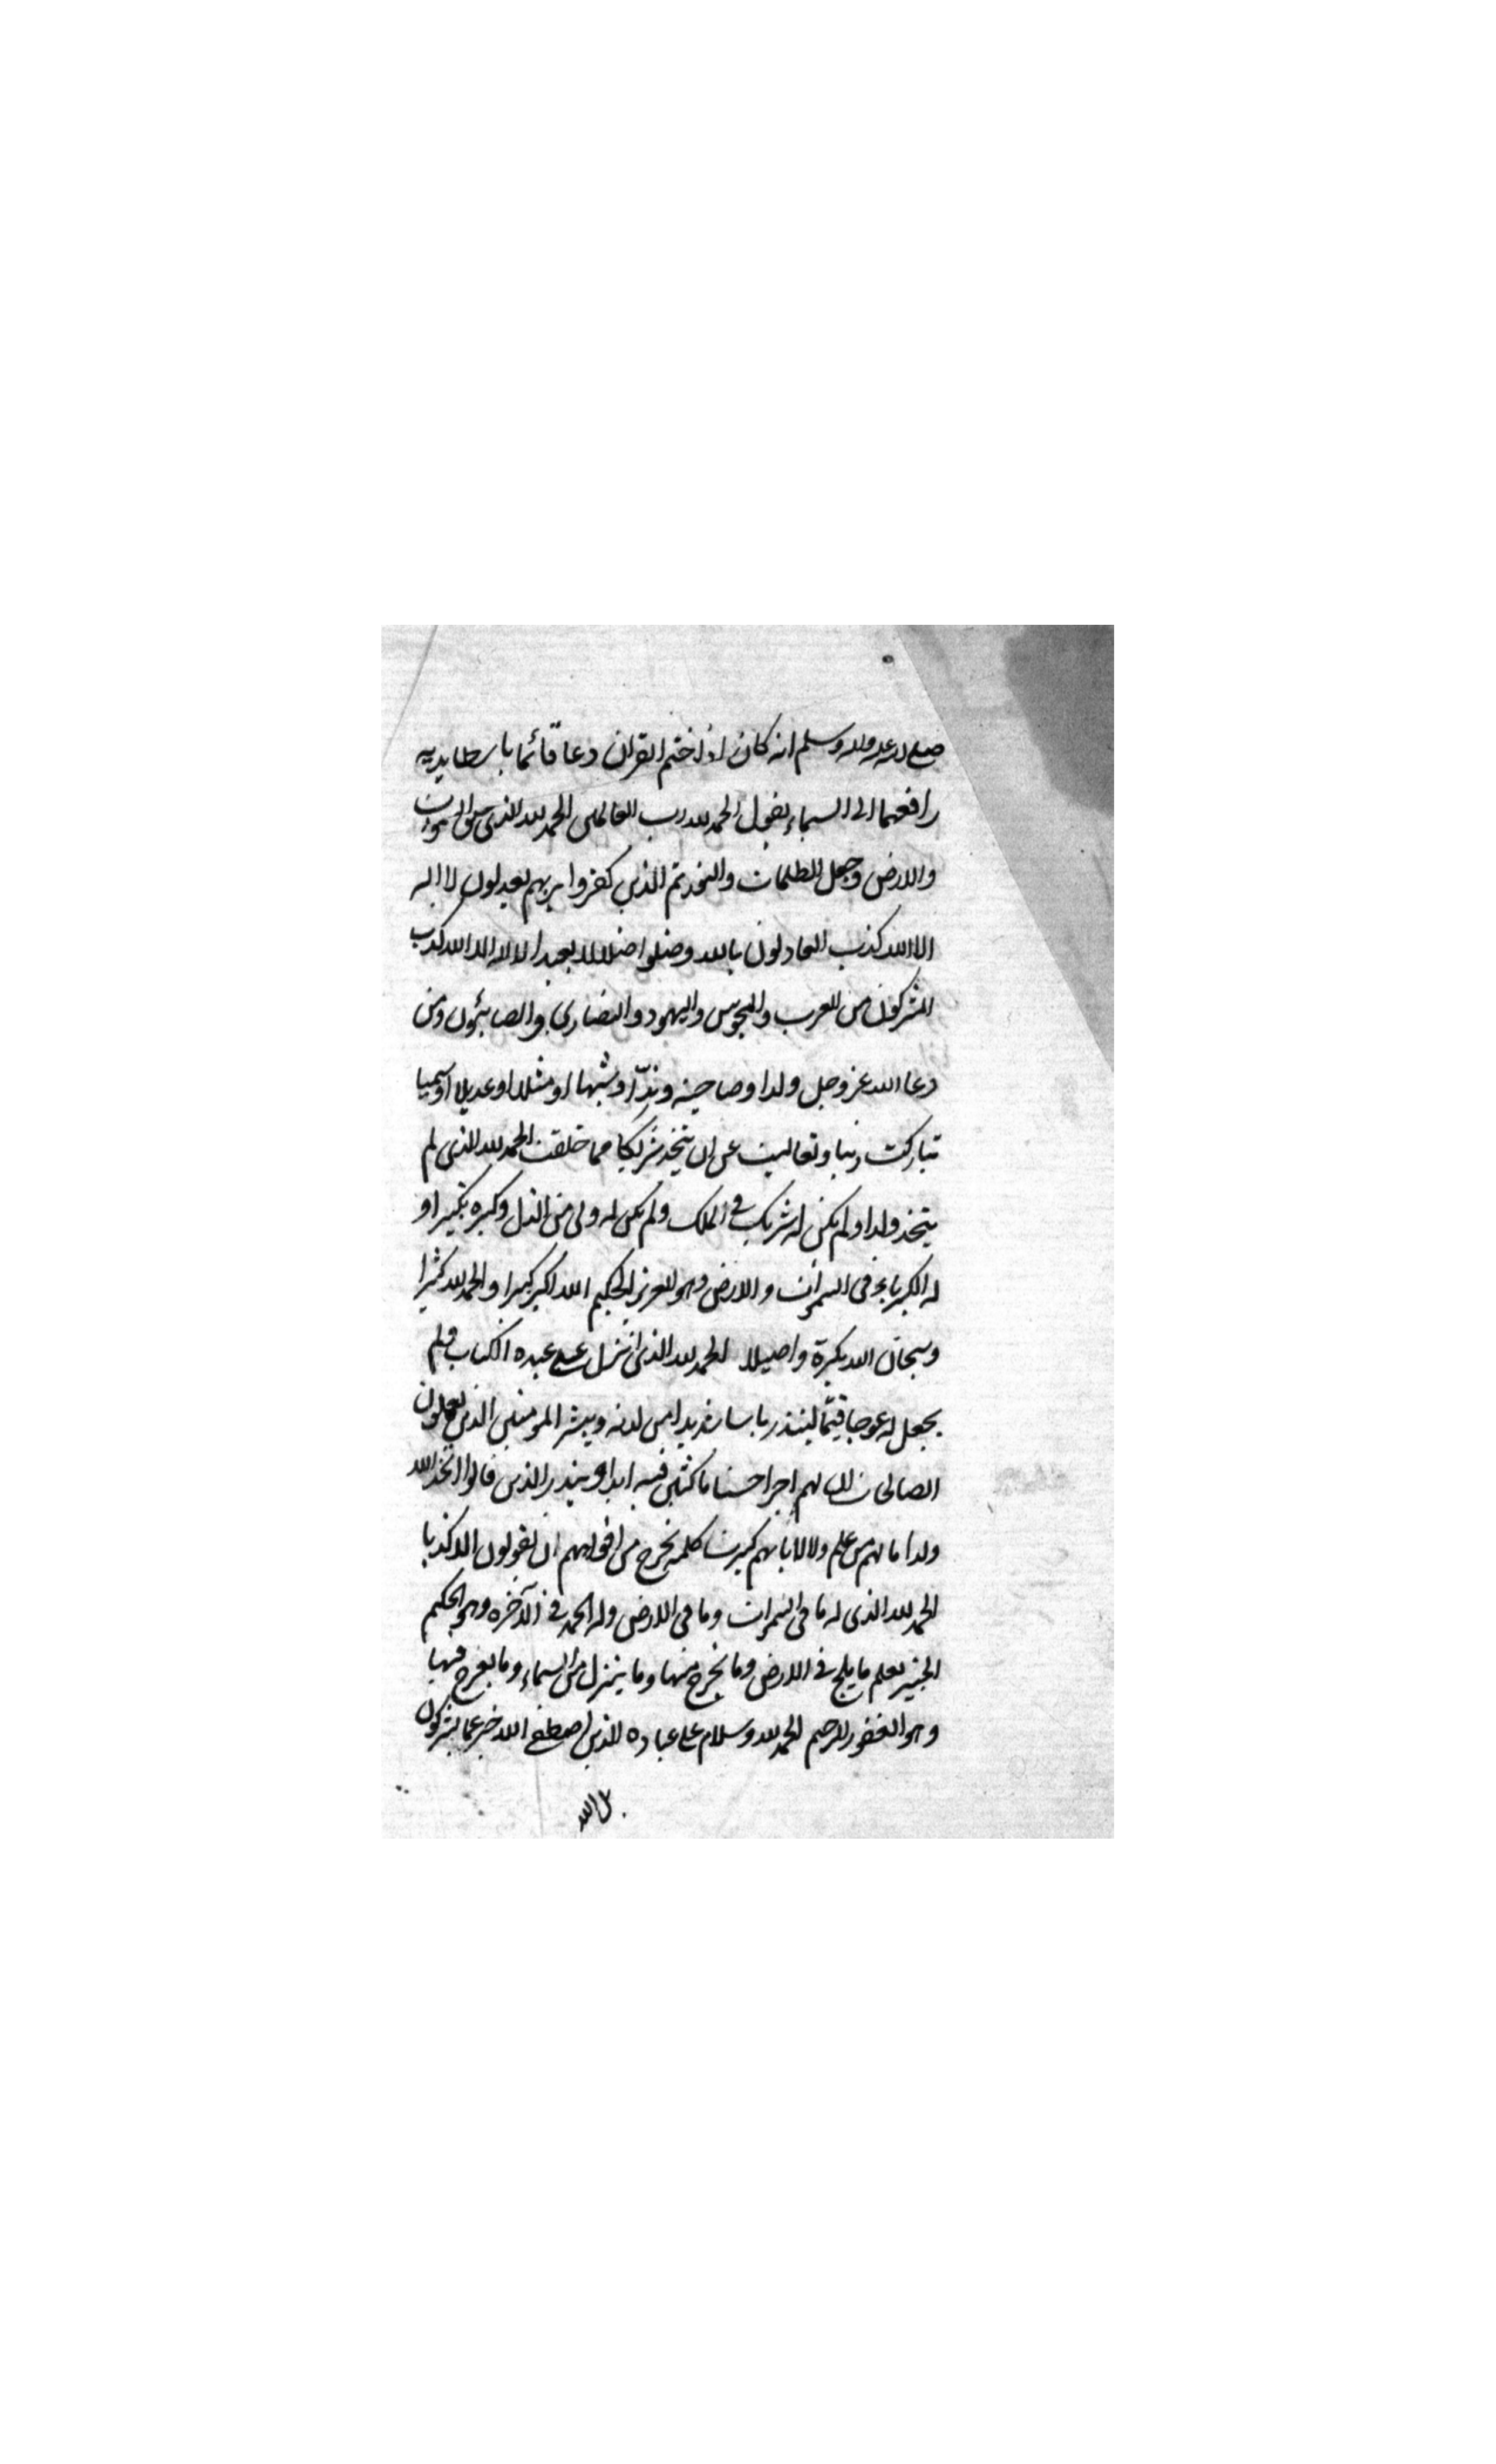 صلى الله عليه واله وسلم انه كان اذا ختم القران دعا قائما باسطا يديه
رافعهما الى السماء يقول الحمد لله رب العالمين الحمد لله الذي خلق السموات
والارض وجعل الظلمات والنور ثم الذين كفروا بربهم يعدلون لا اله
الا الله كذب العادلون بالله وضلوا ضلالا بعيدا لا اله الا الله كذب
المشركون من العرب والمجوس واليهود والنصارى والصابئون ومن
دعا الله عز وجل ولدا وصاحبة وندّا وشبها او مثلا او عديلا او سميا
تباركت ربنا وتعاليت عن ان يتخذ شريكا مما خلقت الحمد لله الذي لم
يتخذ ولدا ولم يكن له شريك في الملك ولم يكن له ولى من الذل وكبره تكبيرا و
له الكبرياء في السموات والارض وهو العزيز الحكيم الله اكبر كبيرا والحمد لله كثيرا
وسبحان الله بكرة واصيلا الحمد لله الذي انزل على عبده الكتاب ولم
يجعل له عوجا قيّما لينذر باسا شديدا من لدنه ويبشر المومنين الذين يعملون
الصالحات ان لهم اجرا حسنا ماكثين فيه ابدا وينذر الذين قالوا اتخذ الله
ولدا ما لهم من علم ولا لابائهم كبرت كلمة تخرج من افواههم ان يقولون الا كذبا
الحمد لله الذي له ما في السموات وما في الارض وله الحمد في الآخره وهو الحكيم
الخبير يعلم ما يلج في الارض وما يخرج منها وما ينزل من السماء وما يعرج فيها
وهو الغفور الرحيم الحمد لله وسلام على عباده الذين اصطفى الله خير عما يشركون
بل الله